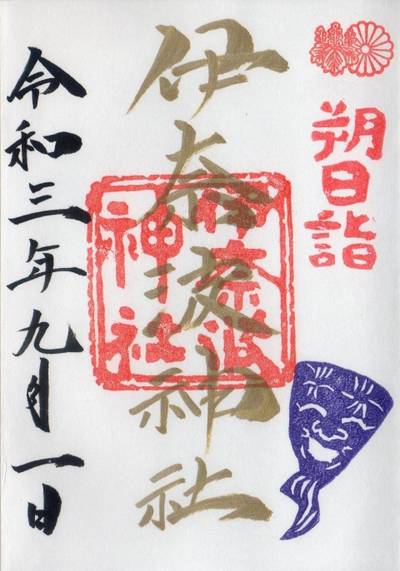 朔日詣
伊奈波神社
伊奈波
神社
令和三年九月一日